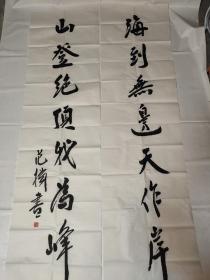 海到無邊天作岸
山登絶頂我為峰
范偉書